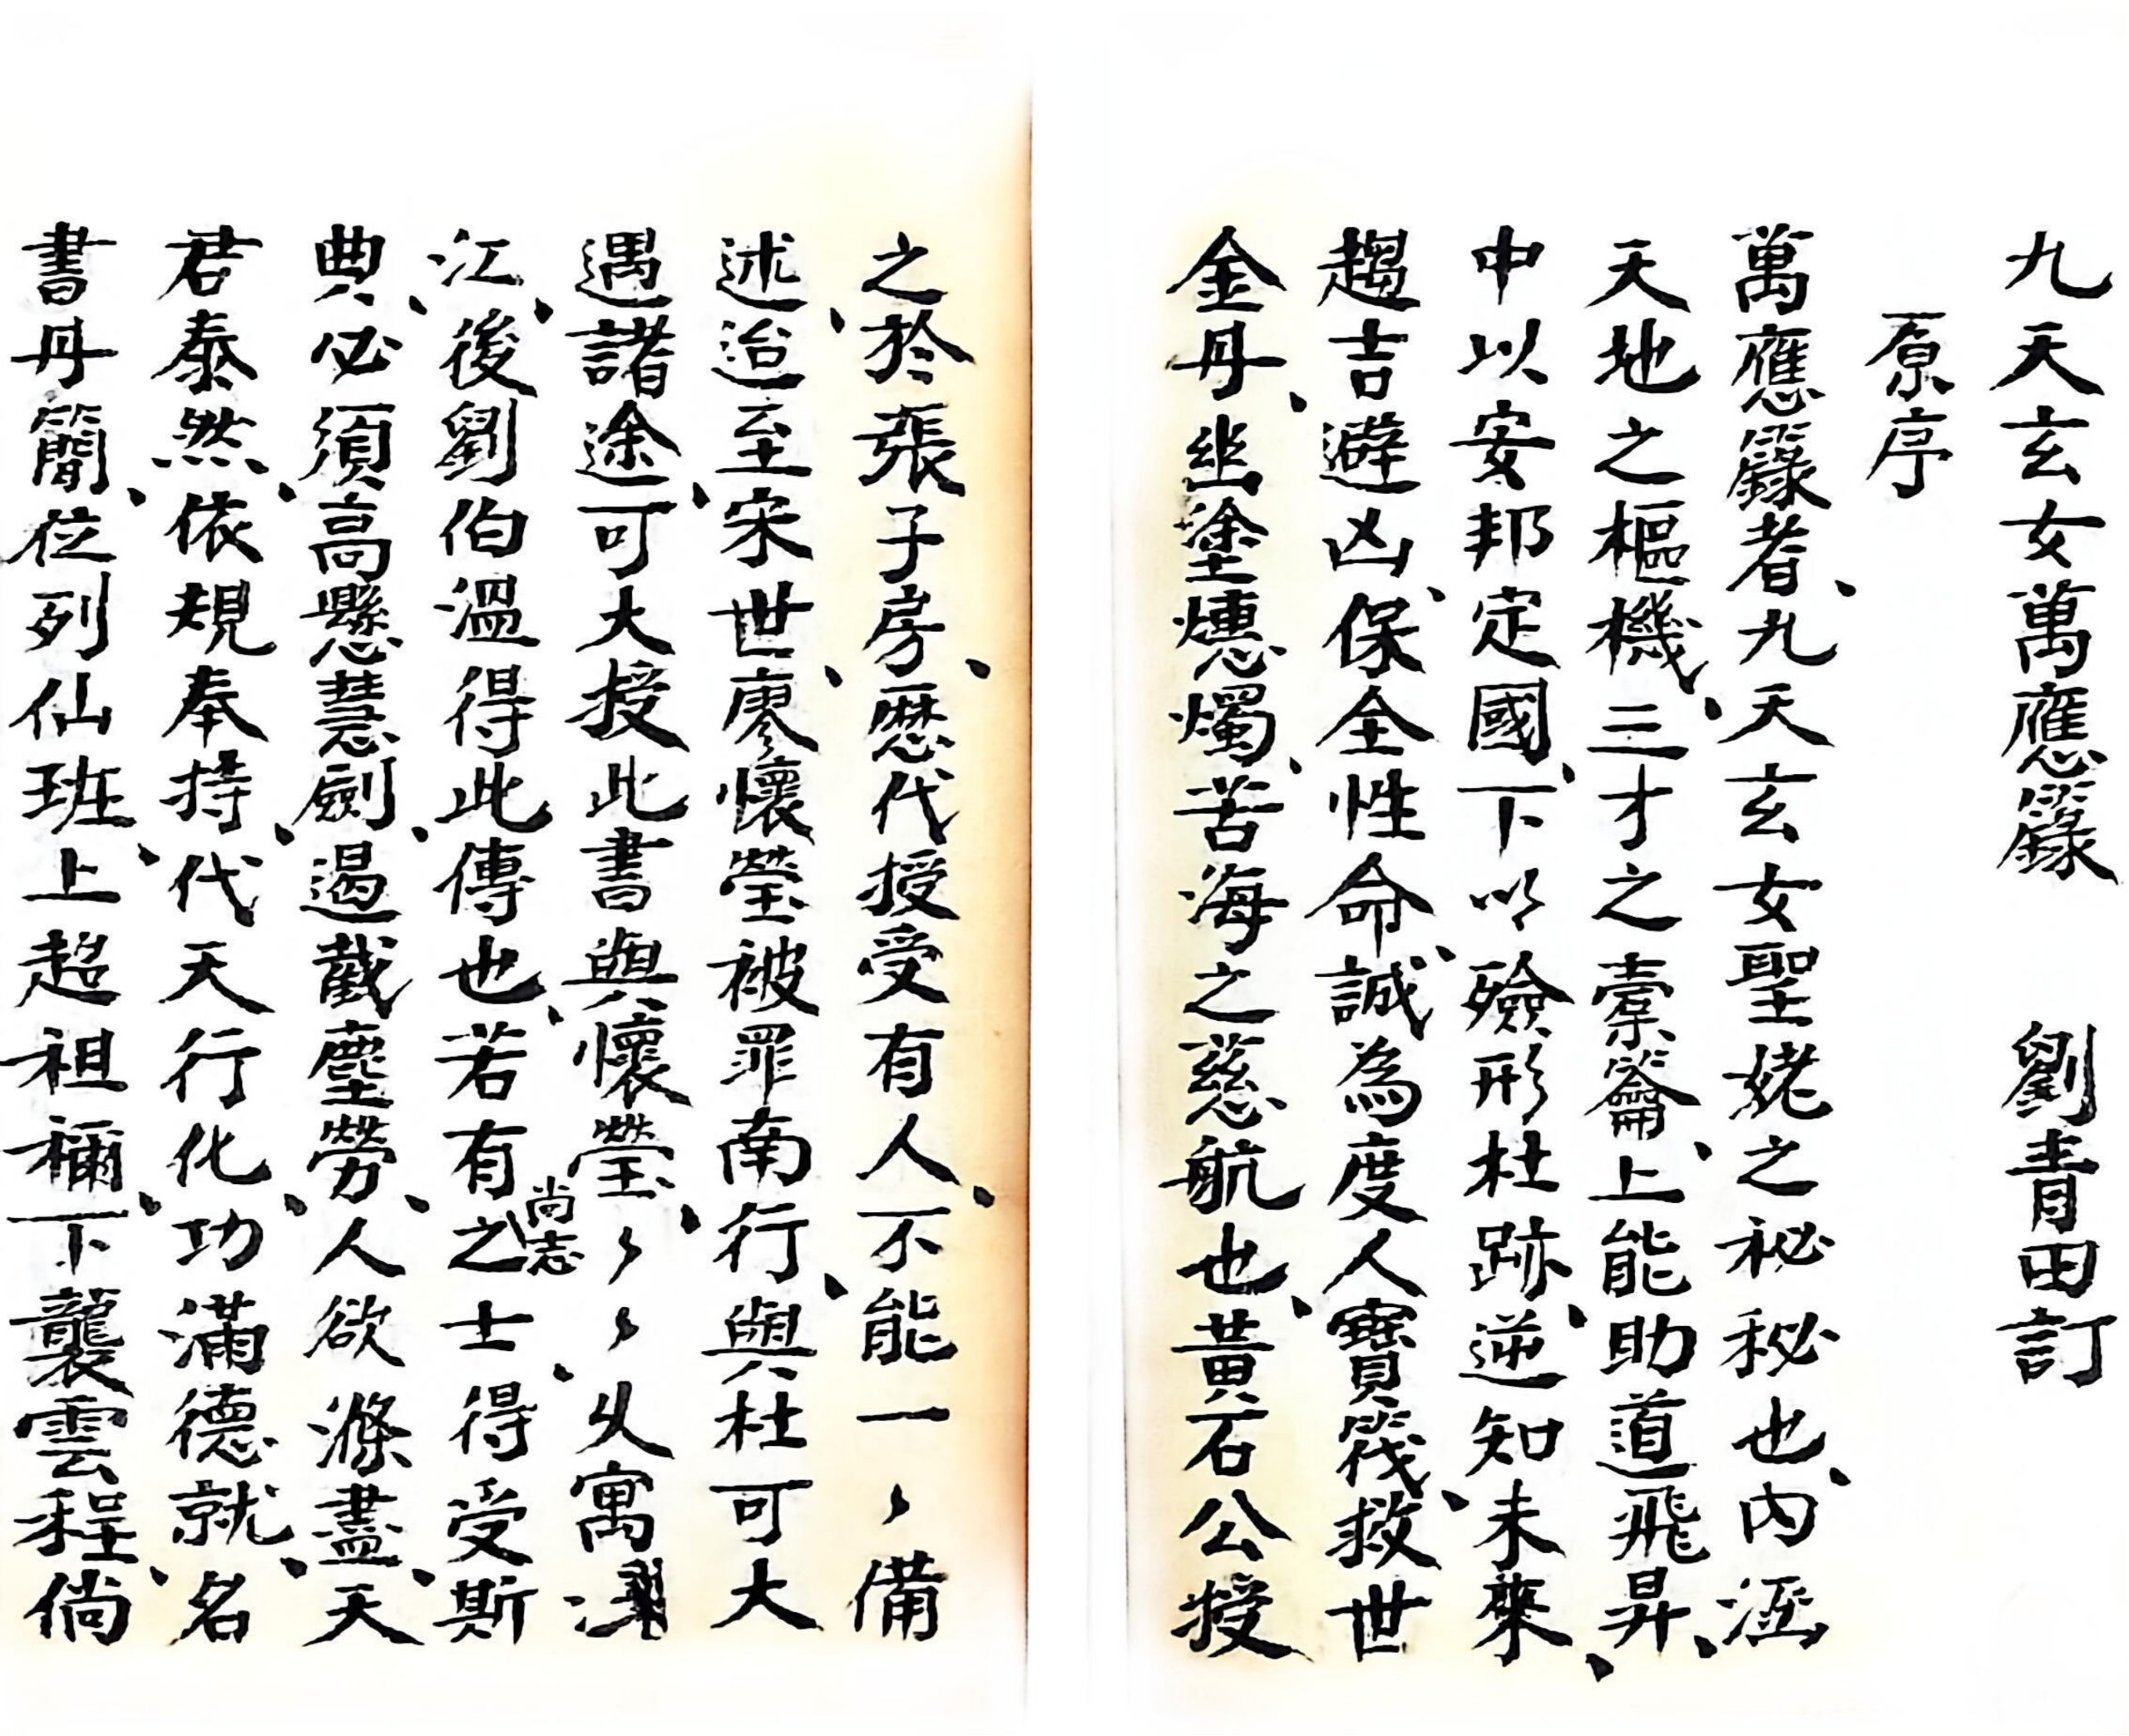 九天玄女萬應籙　劉青田訂
原序
萬應籙者、九天玄女聖姥之祕秘也、內涵
天地之樞機、三才之橐籥、上能助道飛昇、
中以安邦定國、下以殮形杜跡、逆知未來、
趨吉避凶、保全性命、誠為度人寶筏、救世
金丹、幽塗燻燭、苦海之慈航也、黃石公授
之於張子房、歷代授受有人、不能一〻備
述、迨至宋世、廖懷瑩被罪南行、與杜可大
遇諸途、可大授此書與懷瑩、〻〻又寓
江、後劉伯溫得此傳也、若有尚志之士、得受斯
典、必須高懸慧劍、遏截塵勞、人欲滌盡、天
君泰然、依規奉持、代天行化、功滿德就、名
書丹簡、位列仙班、上超祖禰、下襲雲程、倘